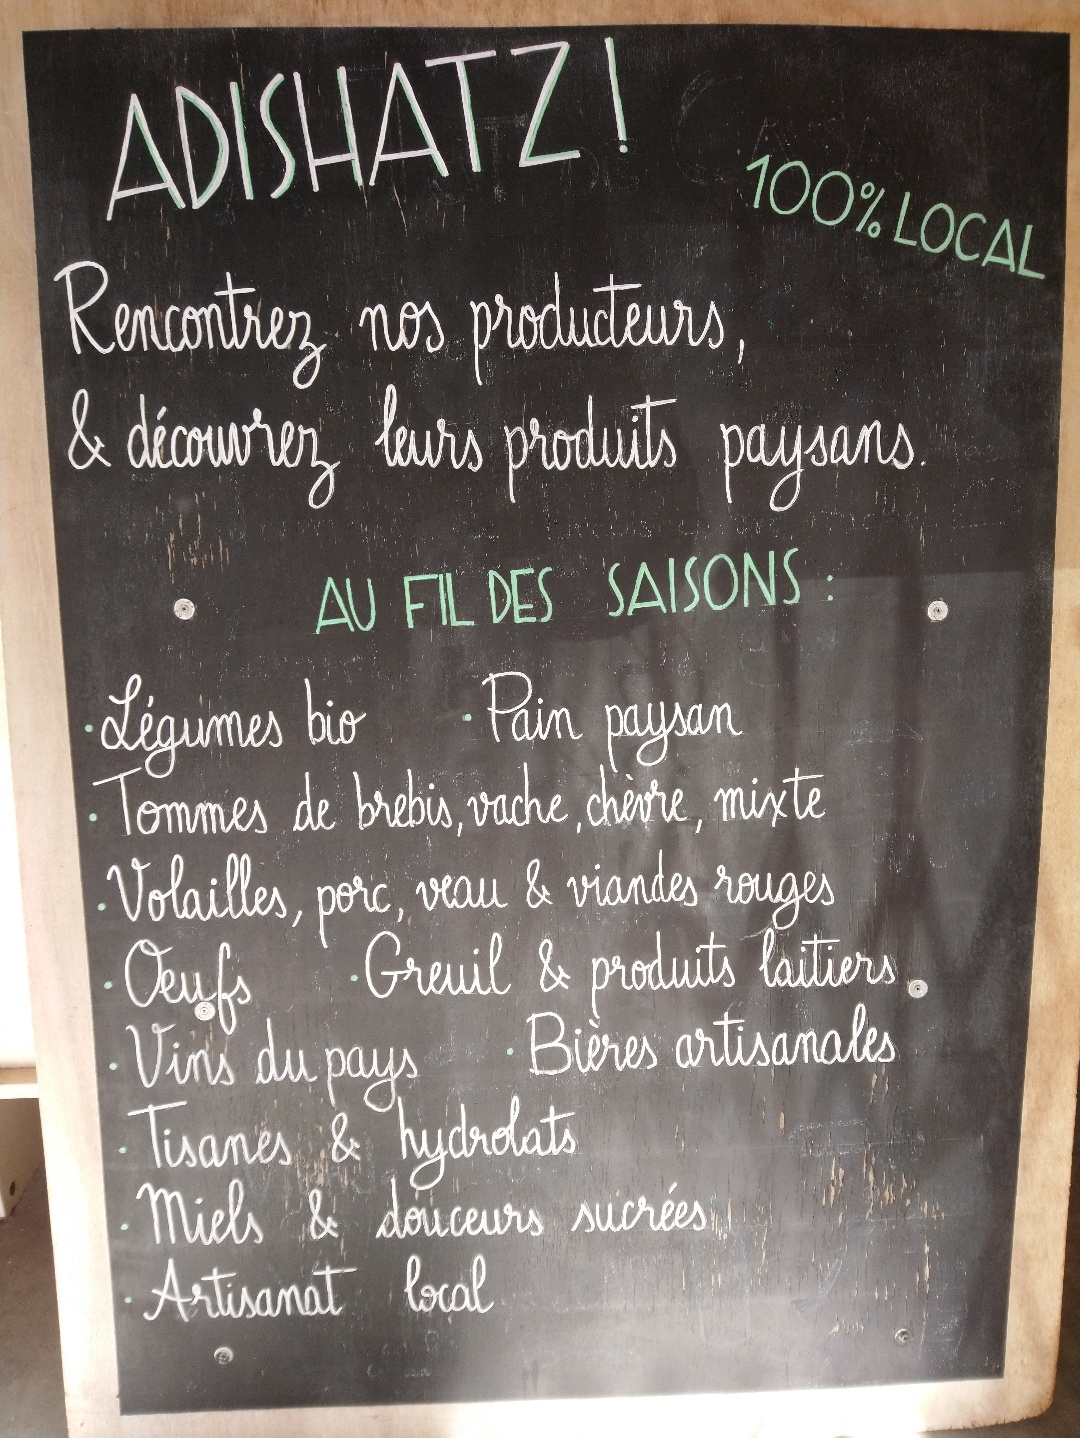 ADISHATZ !
100% LOCAL
Rencontrez nos producteurs,
& découvrez leurs produits paysans.
AU FIL DES SAISONS :
· Légumes bio · Pain paysan
· Tommes de brebis, vache, chèvre, mixte
· Volailles, porc, veau & viandes rouges
· Oeufs · Greuil & produits laitiers
· Vins du pays · Bières artisanales
· Tisanes & hydrolats
· Miels & douceurs sucrées
· Artisanat local